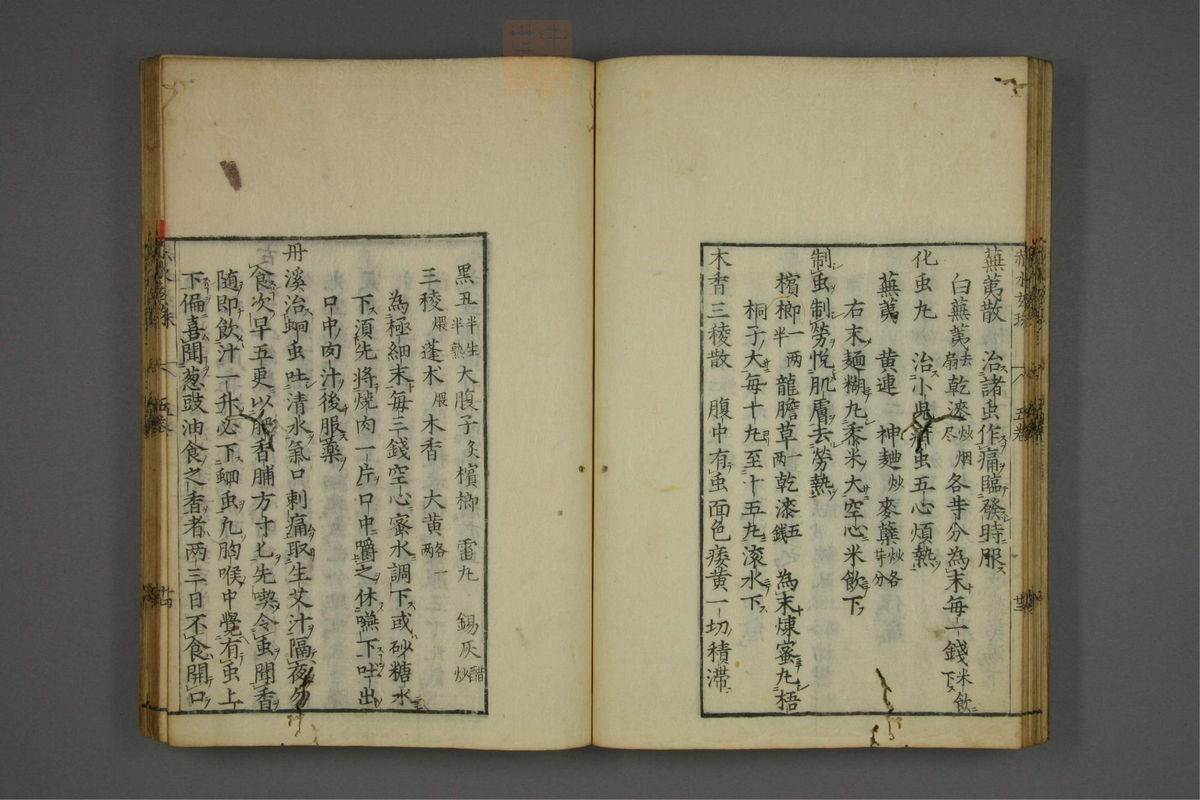 蕪荑散　治諸虫作痛臨發時服
白蕪荑去扇乾漆炒烟尽各等分為末每一錢米飲下
化虫丸　治小兒疳虫五心煩熱
蕪荑　黄連　神麯炒　麥糵炒各等分
右末麺糊丸黍米大空心米飲下
制虫制勞悦肌膚去勞熱
檳榔一两半龍膽草一两乾漆五錢　為末煉蜜丸梧
桐子大每十丸至十五丸滚水下
木香三稜散　腹中有虫面色痿黄一切積滞
黒丑半生半熟大腹子炙檳榔　雷丸　錫灰醋炒
三稜煨蓬朮煨　木香　大黄各一两
為極細末每三錢空心蜜水調下或砂糖水
下須先將焼肉一片口中嚼之休嚥下吐出
口中肉汁後服藥
丹溪治蛔虫吐清水氣口刺痛取生艾汁隔夜勿
食次早五更以肥香脯方寸匕先喫令虫聞香
随即飲汁一升必下蛔虫凡胸喉中覺有虫上
下偏喜聞葱豉油食之香者两三日不食開口